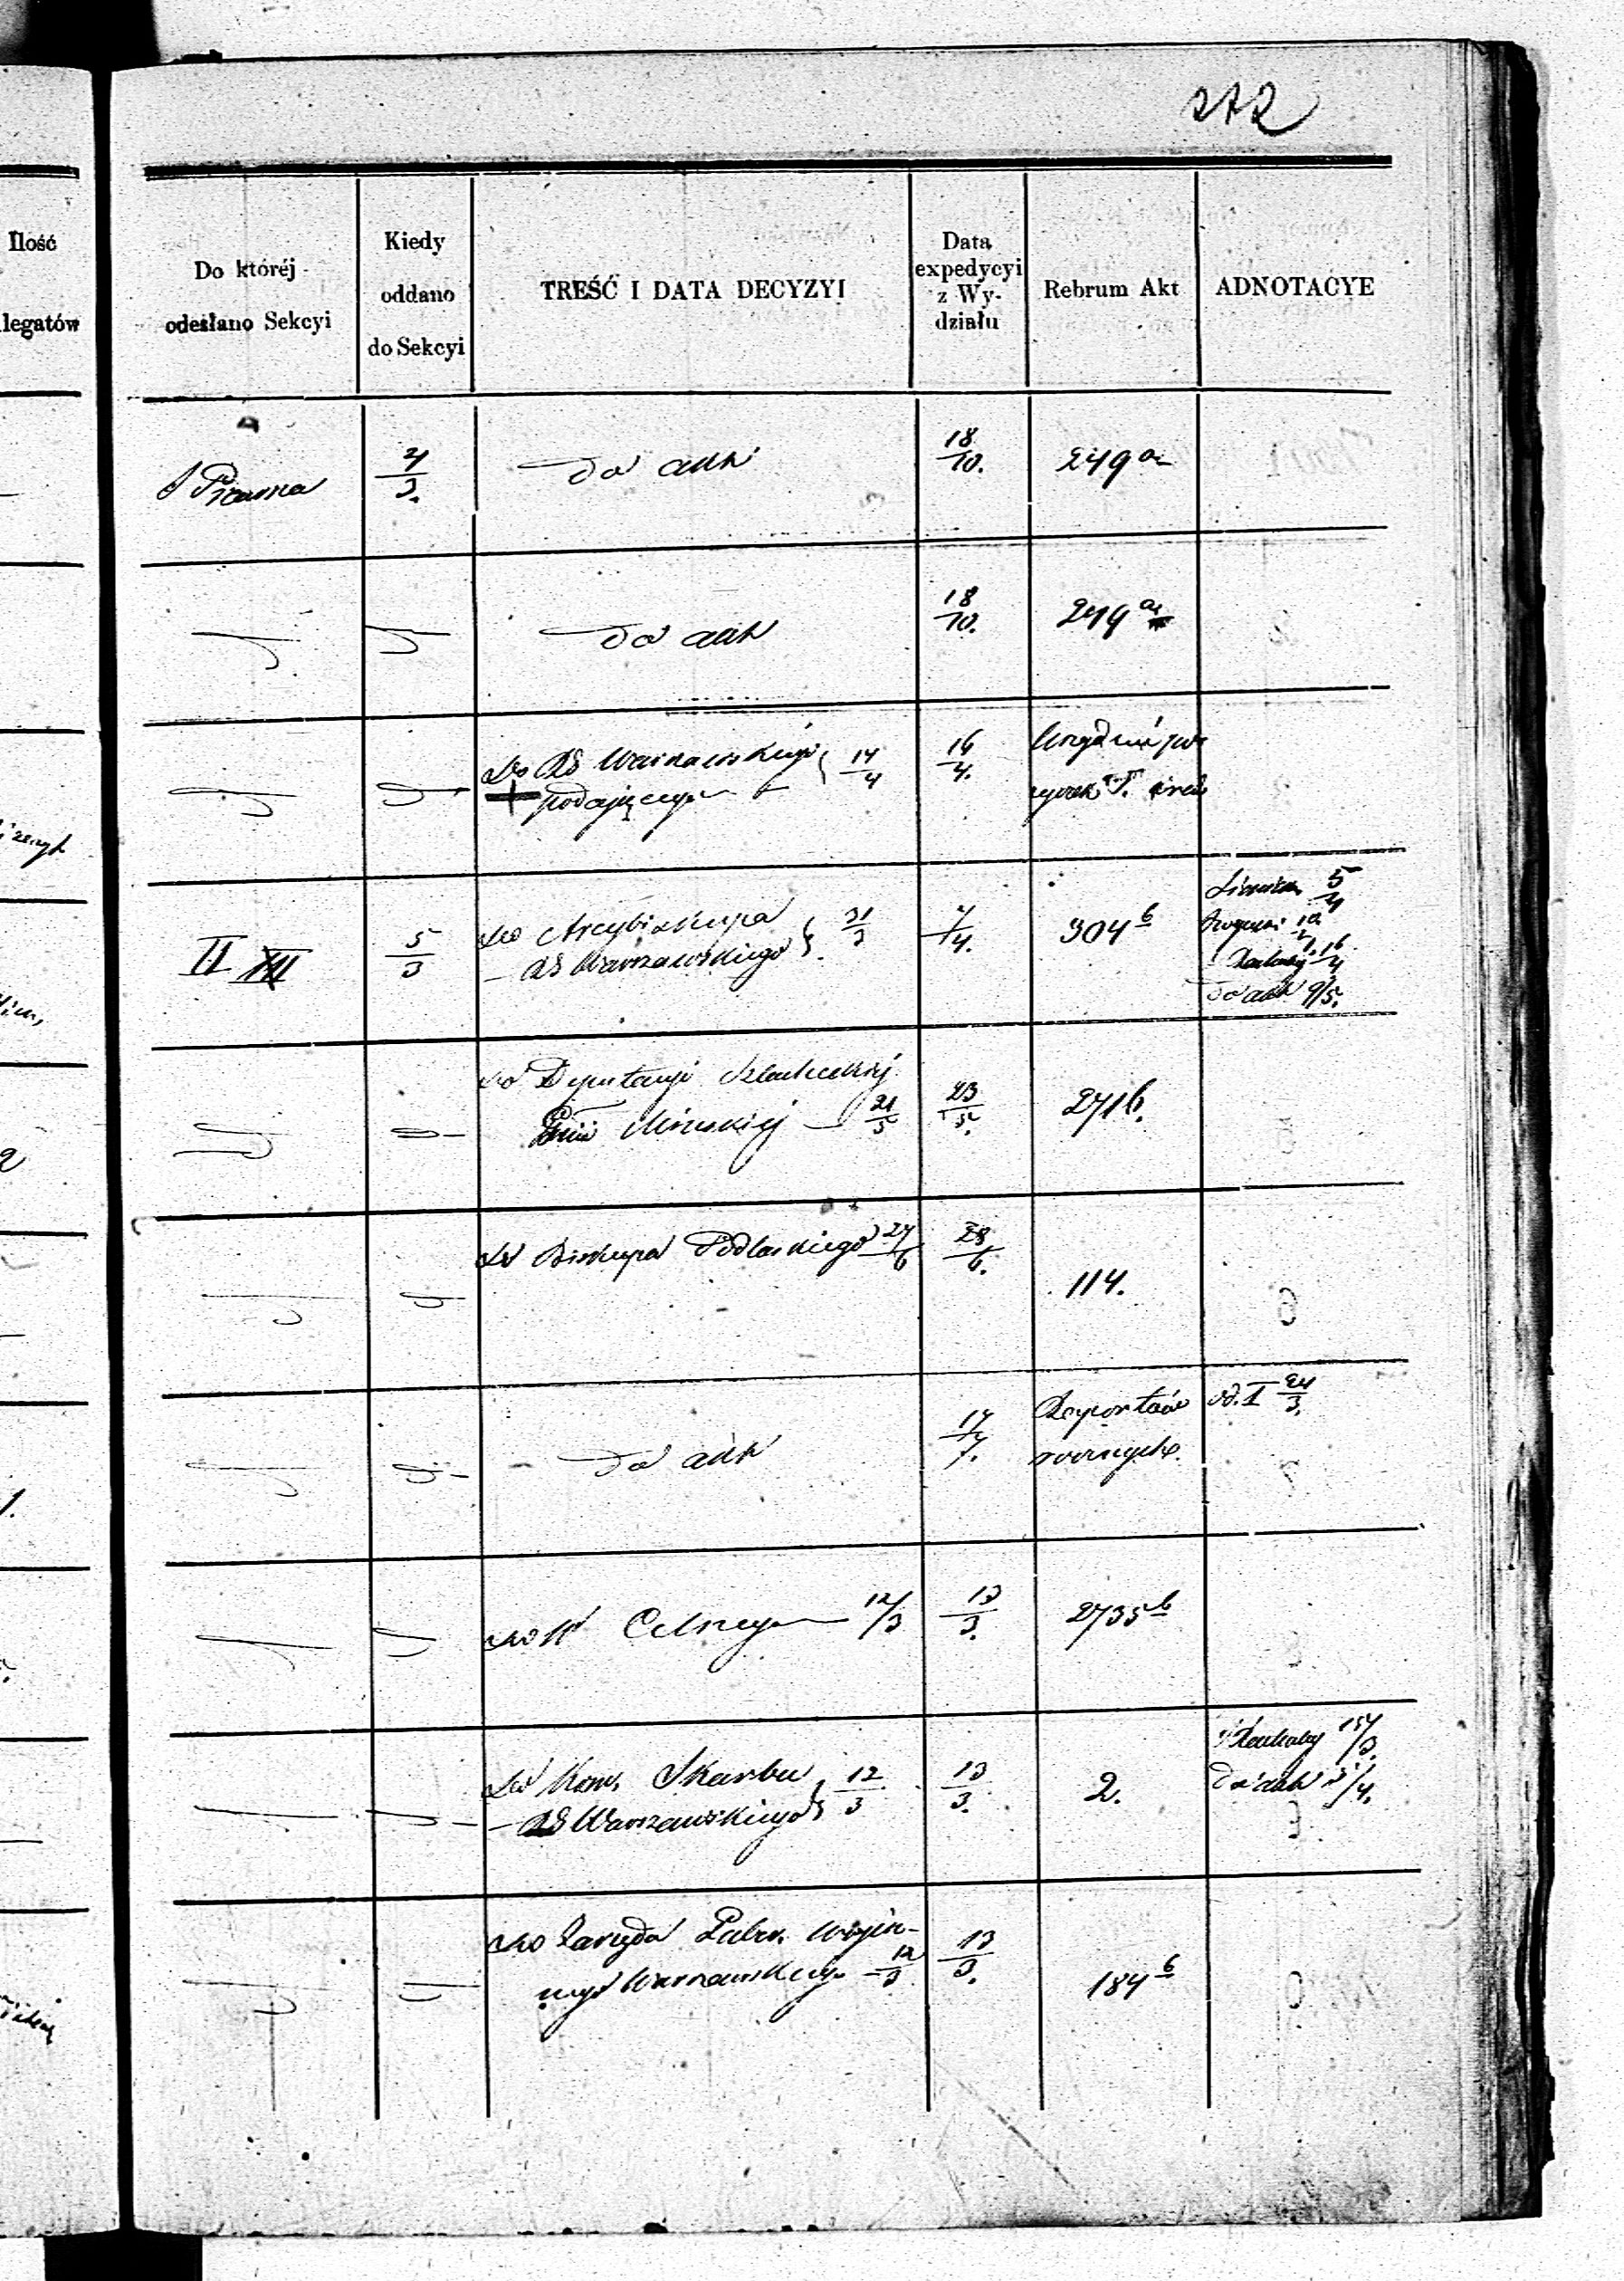 272
Ilość
legatów
Do któréj
odesłano Sekcyi
Kiedy
oddano
do Sekcyi
TREŚĆ I DATA DECYZYI
Data
expedycyi
z Wy-
działu
Rebrum Akt
ADNOTACYE
4/3.
do akt
18/10.
249 a
do akt
18/10.
249 a
Do RG Warszawskiego 14/4
podającego
16/4.
II
5/3
Do Arcybiskupa
RG Warszawskiego 31/3
4/4.
304 b
5/4
16/4
Do akt 9/5.
Do Deputacyi Szlacheckiej
Gnii Mińskiej 21/5
23/5.
271 b.
Do Biskupa Podlaskiego 27/6
28/6.
114.
do akt
17/7.
Raportów
od. I 24/3.
Celnego 12/3
13/3.
2735 b
Do Kom. Skarbu
RG Warszawskiego 12/3
13/3.
2.
15/3.
Do akt 3/4.
Do Zarządu
Warszawskiego 12/3
13/3.
184 b